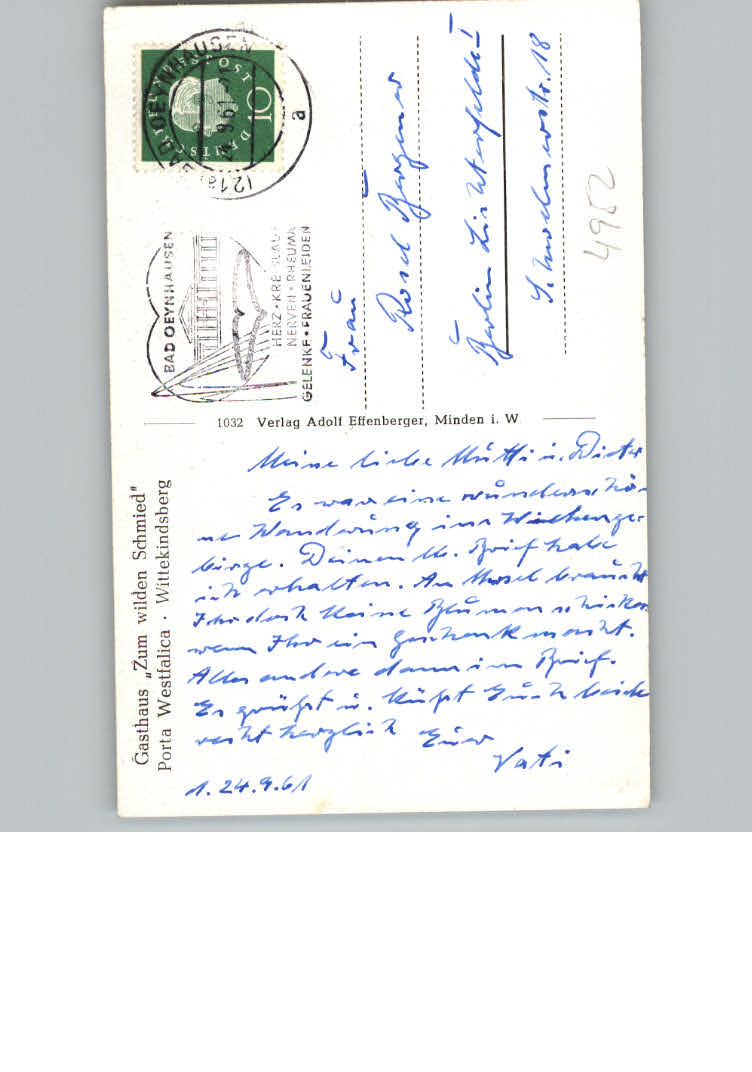 BAD OEYNHAUSEN
(21a)
a
DEUTSCHE BUNDESPOST
10
BAD OEYNHAUSEN
HERZ • KREISLAUF
NERVEN • RHEUMA
GELENKE • FRAUENLEIDEN
Frau
Rosel Bergener
Berlin Lichterfelde I
18
4952
1032 Verlag Adolf Effenberger, Minden i. W.
Gasthaus „Zum wilden Schmied"
Porta Westfalica · Wittekindsberg
Meine liebe Mutti u. Dieter
Es war eine wunderschö-
ne Wanderung ins Wiehenge-
birge. Deinen lb. Brief habe
ich erhalten. An braucht
Ihr doch keine Blumen schicken
wenn Ihr ein Geschenk macht.
Alles andere dann im Brief.
Es grüßt u. küßt Euch beide
recht herzlich Euer
Vati
1. 24.9.61